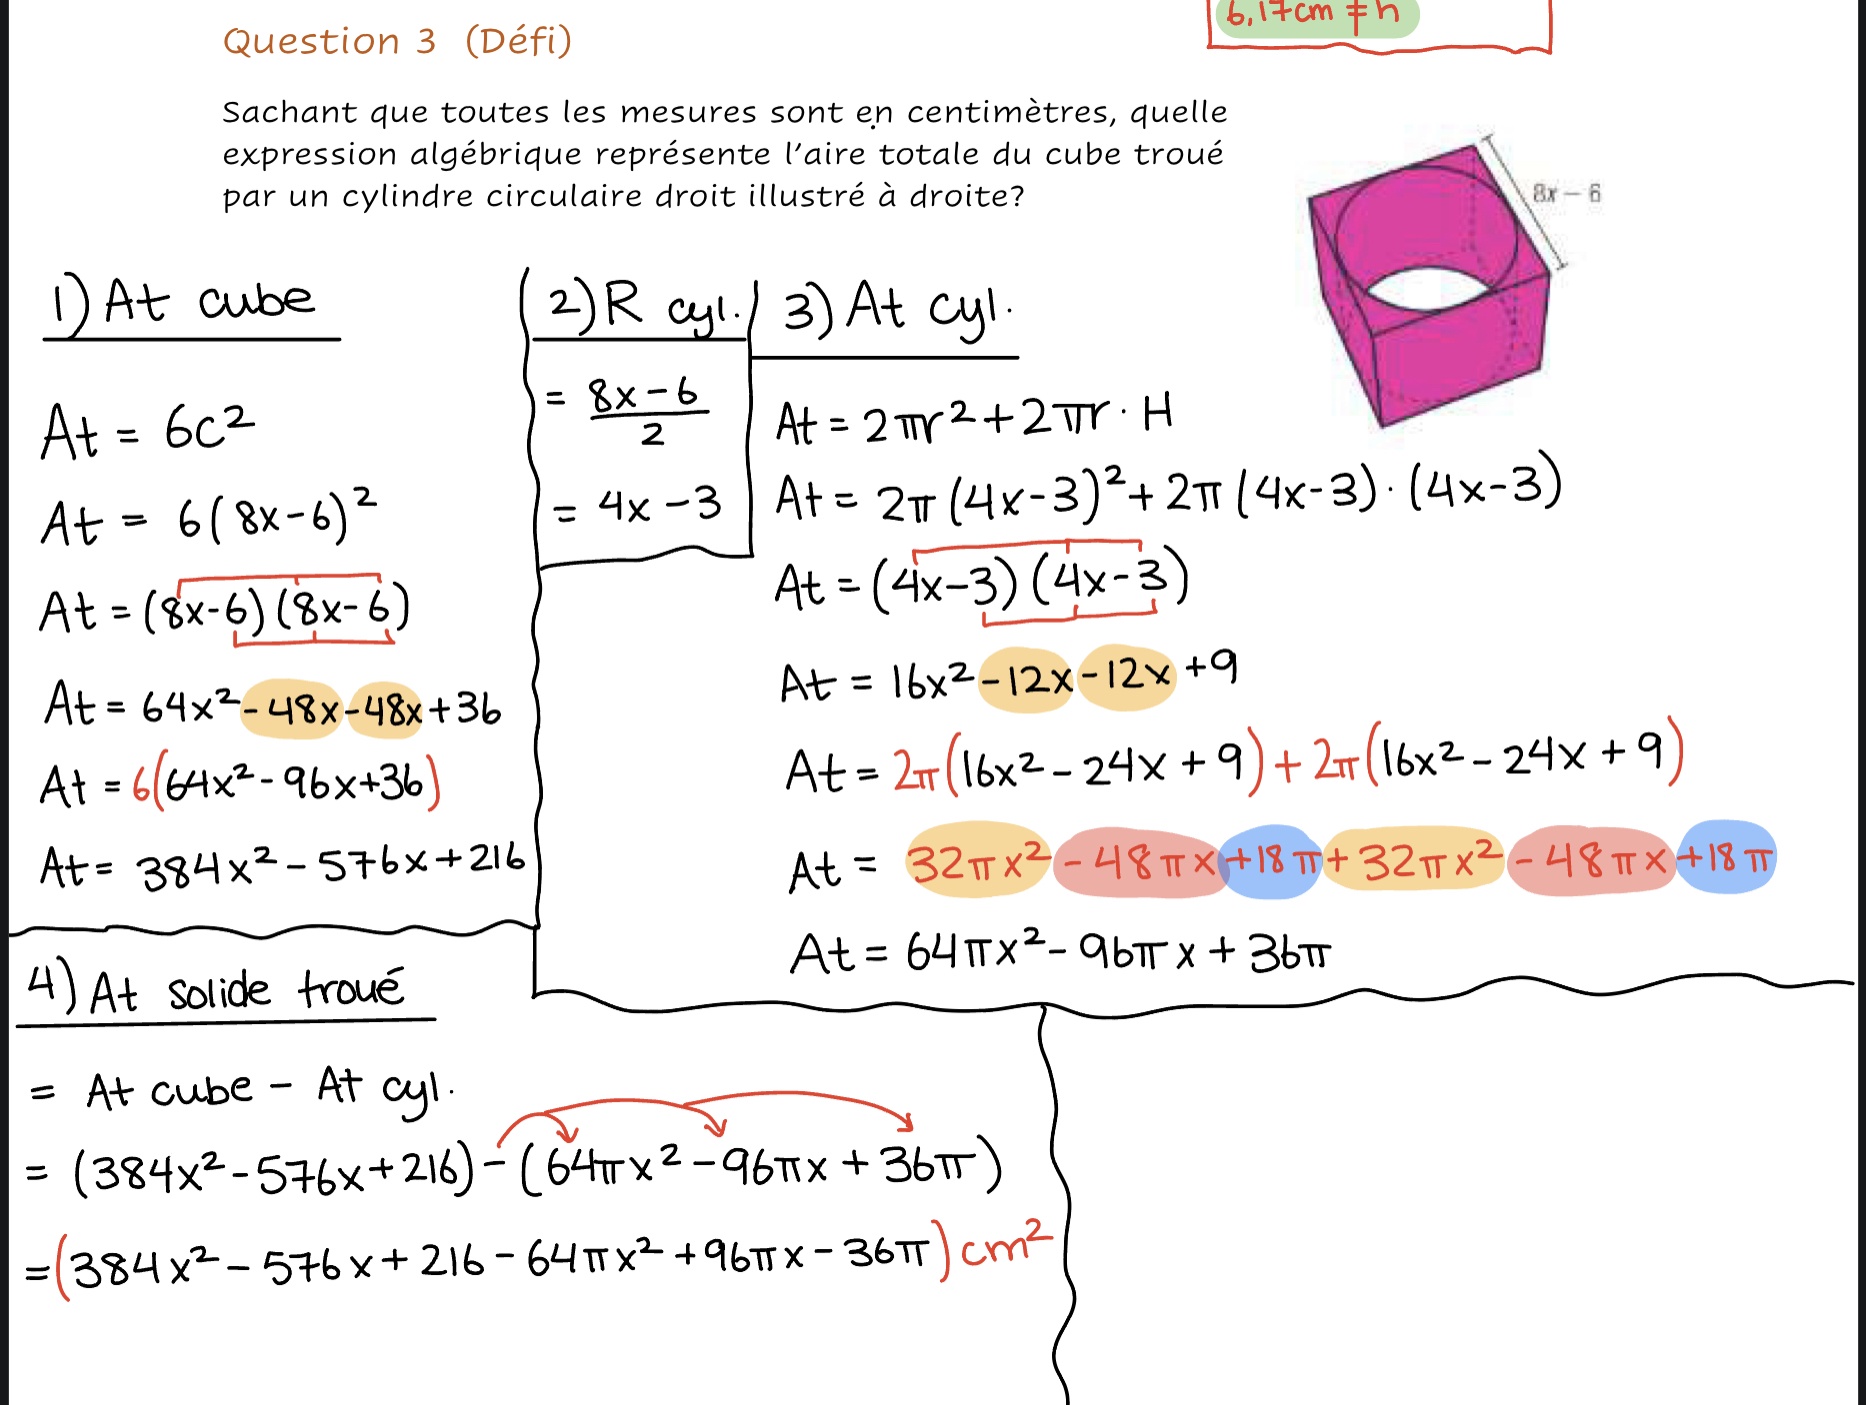 6,17cm ≠ h
Question 3 (Défi)
Sachant que toutes les mesures sont en centimètres, quelle
expression algébrique représente l'aire totale du cube troué
par un cylindre circulaire droit illustré à droite?
8x – 6
1) At cube
At = 6c²
At = 6(8x-6)²
At = (8x-6)(8x-6)
At = 64x² - 48x - 48x + 36
At = 6(64x² - 96x + 36)
At = 384x² - 576x + 216
2) R cyl.
= 8x - 6
2
= 4x - 3
3) At cyl.
At = 2πr² + 2πr · H
At = 2π(4x-3)² + 2π(4x-3) · (4x-3)
At = (4x-3)(4x-3)
At = 16x² - 12x - 12x + 9
At = 2π(16x² - 24x + 9) + 2π(16x² - 24x + 9)
At = 32πx² - 48πx + 18π + 32πx² - 48πx + 18π
At = 64πx² - 96πx + 36π
4) At solide troué
= At cube - At cyl.
= (384x² - 576x + 216) - (64πx² - 96πx + 36π)
= (384x² - 576x + 216 - 64πx² + 96πx - 36π) cm²